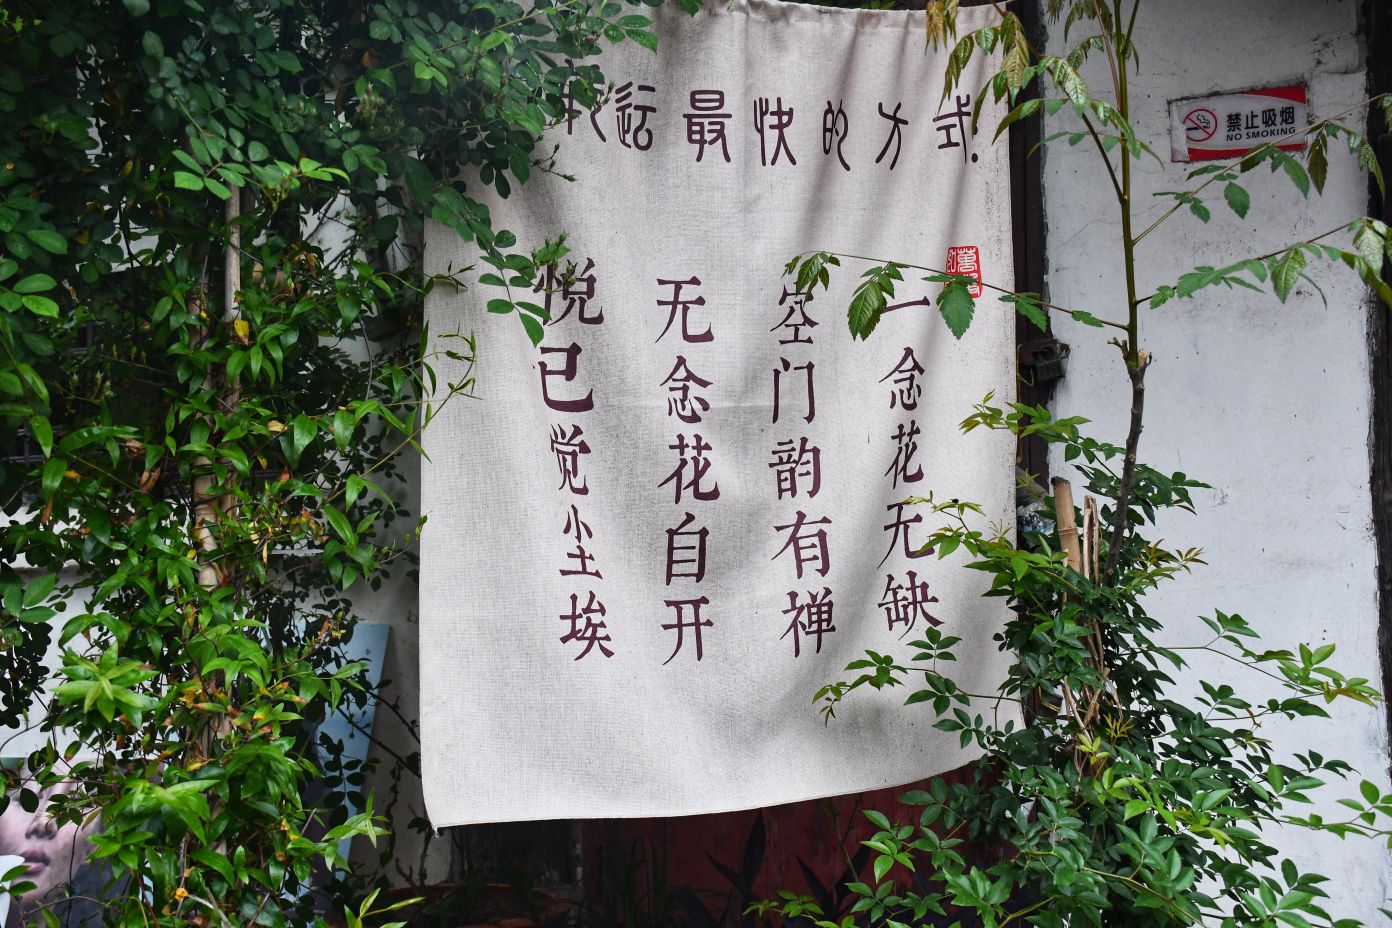 运最快的方式
一念花无缺
空门韵有禅
无念花自开
悦己觉尘埃
禁止吸烟
NO SMOKING